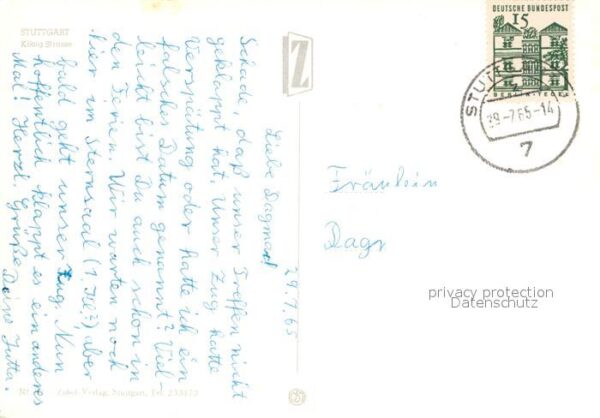 STUTTGART
König Strasse
29.7.65
Liebe Dagmar!
Schade, daß unser Treffen nicht
geklappt hat. Unser Zug hatte
Verspätung oder hatte ich ein
falsches Datum genannt? Viel-
leicht bist Du auch schon in
den Ferien. Wir warten noch
hier im Sternsaal aber
bald geht unser Zug. Nun
hoffentlich klappt es ein anderes
Mal! Herzl. Grüße
Deine Jutta.
Z
DEUTSCHE BUNDESPOST
15
BERLIN-TEGEL
STUTTGART
29-7.65-14
7
Fräulein
Dagm
privacy protection
Datenschutz
Verlag, Stuttgart, Tel.